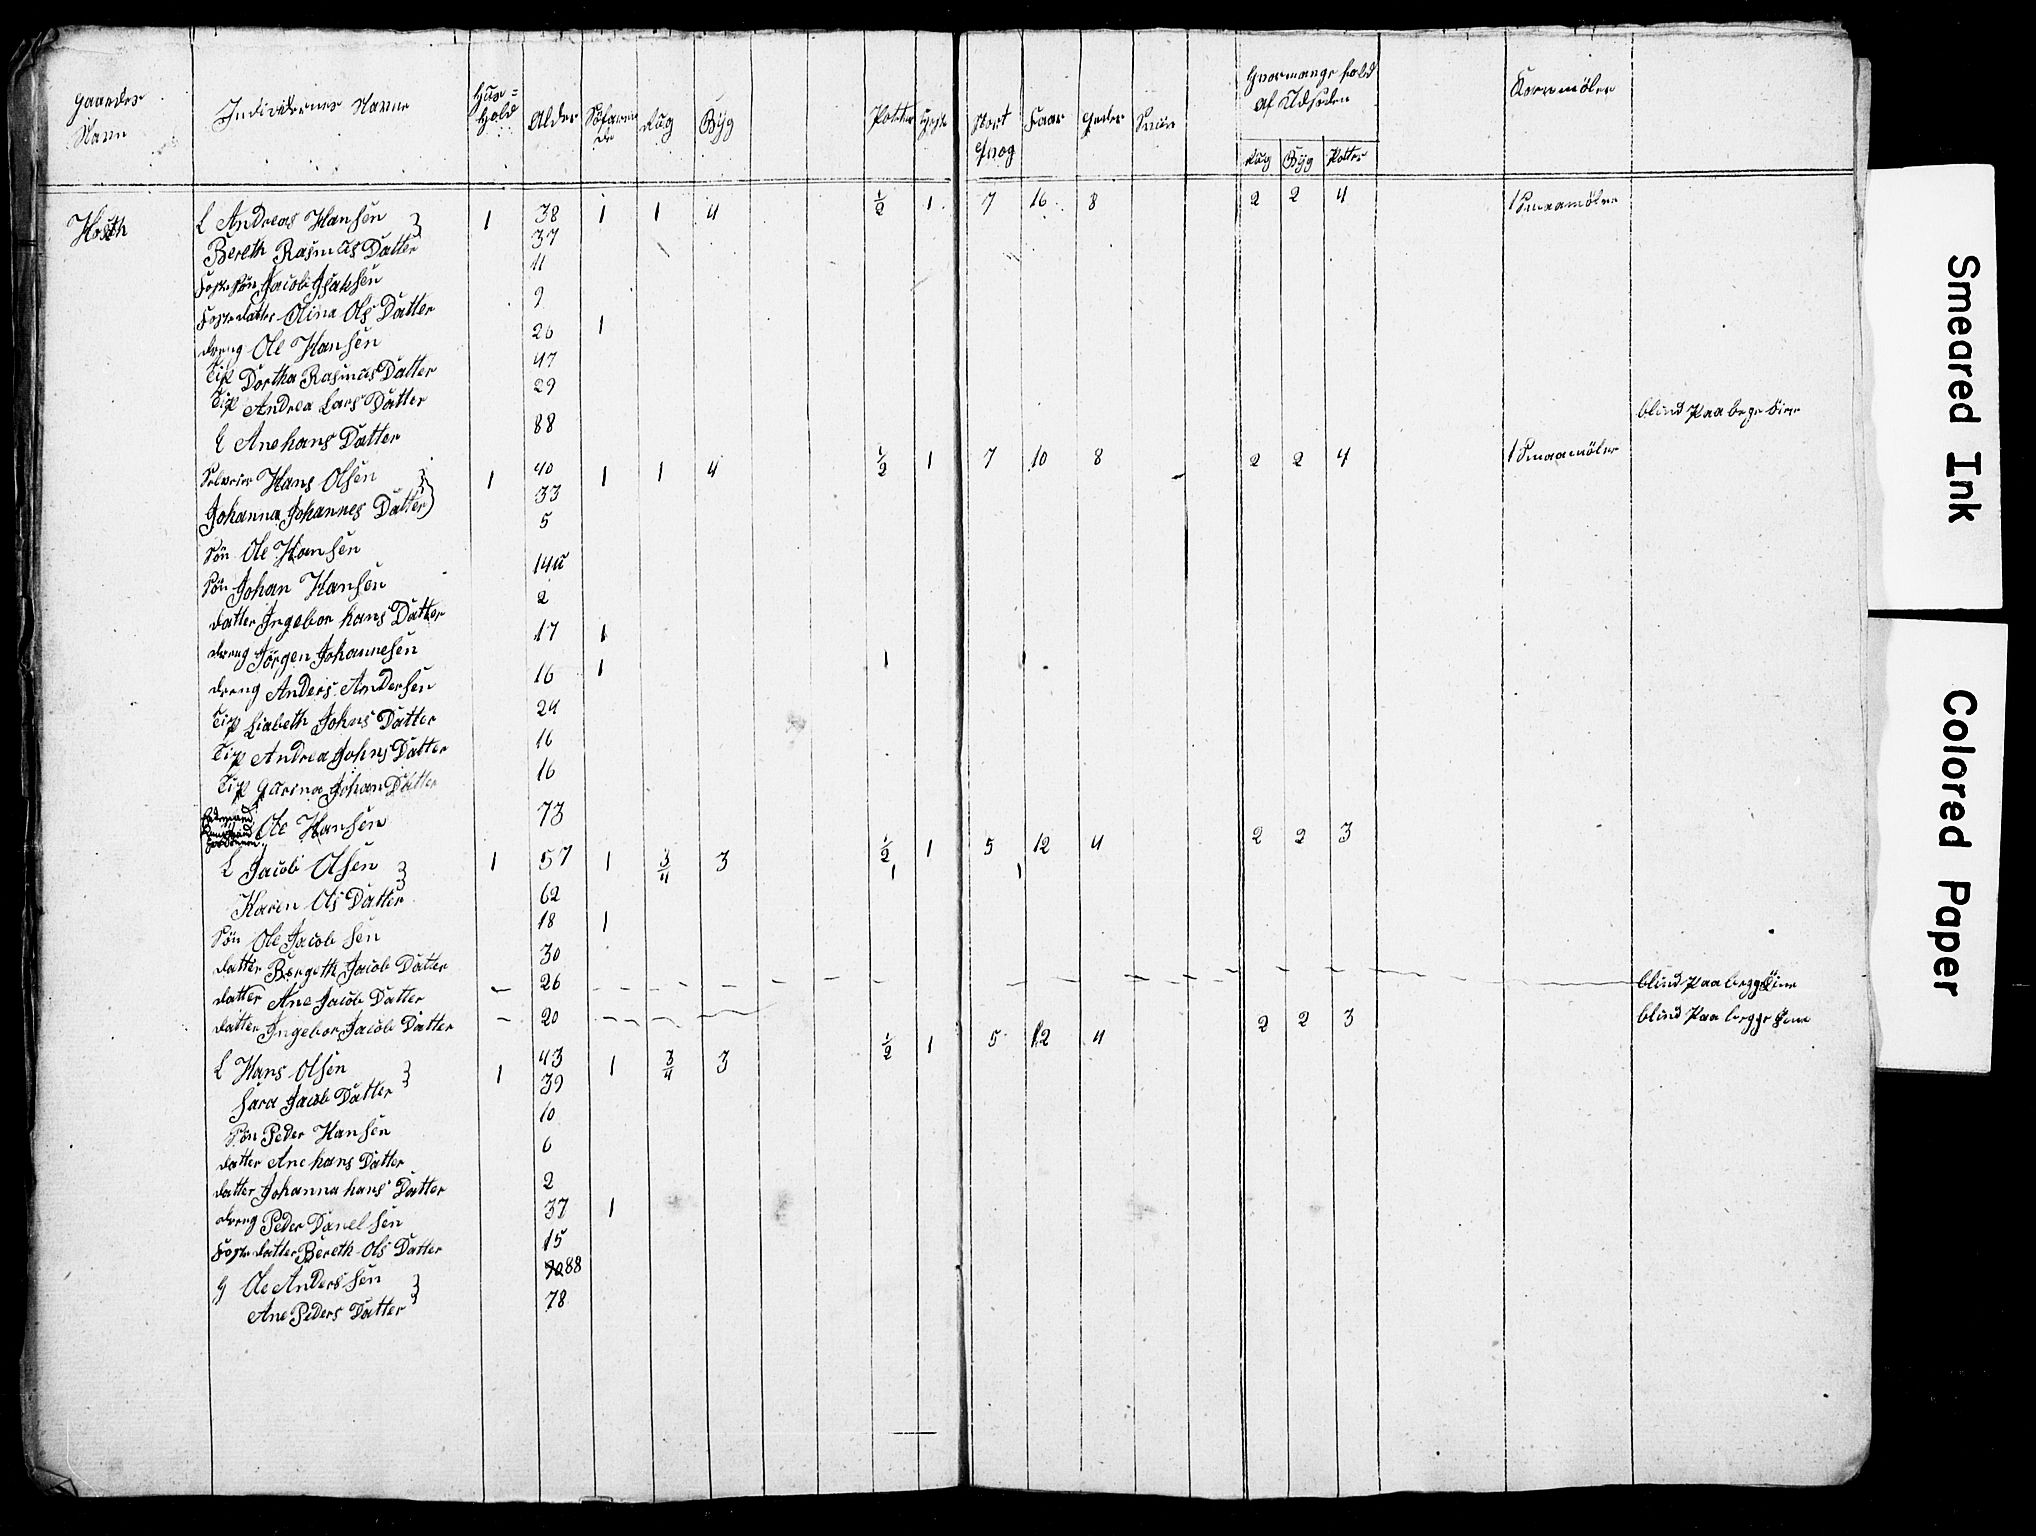 Gaardes Navn | Individernes Navne | Huus= Hold | Alder | Söfarende | Rug | Byg | Potter | Heste | Stort Qvæg | Faar | Geder | Sviin | Hvormange fold af Udsæden | Kornmöler
Rug | Byg | Potter
Hosth | L Andreas Hansen | 1 | 38 | 1 | 1 | 4 | 1/2 | 1 | 7 | 16 | 8 | 2 | 2 | 4 | 1 Smaamöler
Bereth Rasmus Datter | 37
Foster Sön Jacob Isaksen | 11
Foster datter Olina Ols Datter | 9
dreng Ole Hansen | 26 | 1
Tip Dortha Rasmus Datter | 47
Tip Andrea Lars Datter | 29
Ane hans Datter | 88 | blind Paa bege Öine
Selveier Hans Olsen | 1 | 40 | 1 | 1 | 4 | 1/2 | 1 | 7 | 10 | 8 | 2 | 2 | 4 | 1 Smaamöler
Johanna Johannes Datter | 33
Sön Ole Hansen | 5
Sön Johan Hansen
datter Ingebor hans Datter | 2
dreng Jörgen Johannesen | 17 | 1
dreng Anders Andersen | 16 | 1
Tip Lisbeth Johns Datter | 24
Tip Andrea Johns Datter | 16
Tip Garina Johan Datter | 16
Ole Hansen | 73
L Jacob Olsen | 1 | 57 | 1 | 3/4 | 3 | 1/2 | 1 | 5 | 12 | 4 | 2 | 2 | 3
Karen Ols Datter | 62
Sön Ole Jacobsen | 18 | 1
datter Bergeth Jacob Datter | 30
datter Ane Jacob Datter | 26 | blind Paa begge Öine
datter Ingebor Jacob Datter | 20 | blind Paa begge Öine
L Hans Olsen | 1 | 43 | 1 | 3/4 | 3 | 1/2 | 1 | 5 | 12 | 4 | 2 | 2 | 3
Sara Jacob Datter | 39
Sön Peder Hansen | 10
datter Ane hans Datter | 6
datter Johanna hans Datter | 2
dreng Peder Danelsen | 37 | 1
Foster datter Bereth Ols Datter | 15
Ole Anderssen | 88
Ane Peders Datter | 78
Smeared Ink
Colored Paper